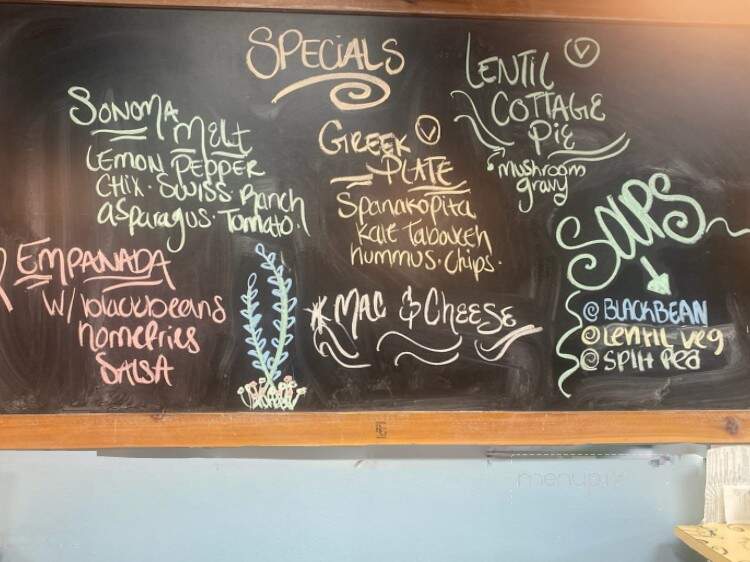 SPECIALS
SONOMA
MELT
LEMON PEPPER
CHIX. SWISS. Ranch
asparagus. Tomato.
GREEK V
PLATE
Spanakopita
Kale Tabouleh
hummus. Chips.
LENTIL V
COTTAGE
PIE
mushroom
gravy
EMPANADA
W/ blackbeans
homefries
SALSA
MAC & CHEESE
SOUPS
BLACKBEAN
LENTIL Veg
SPLIT Pea
menupix